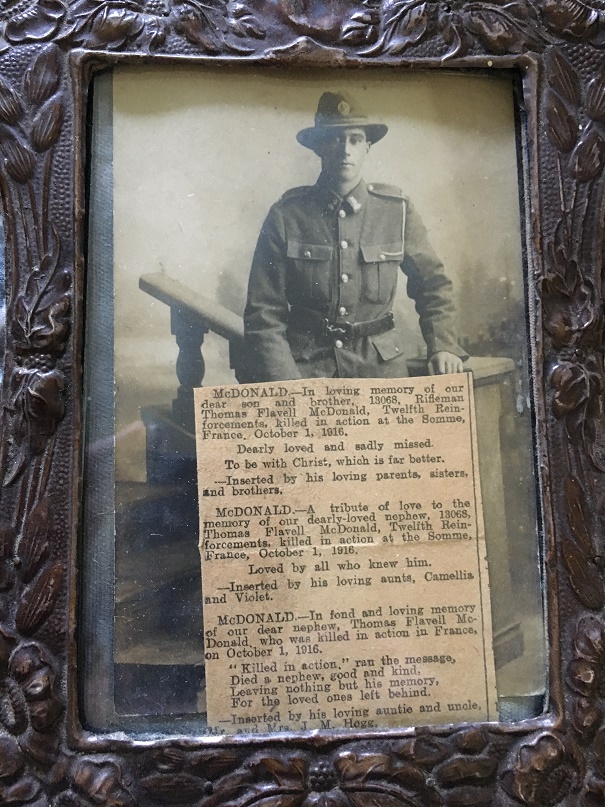 McDONALD.—In loving memory of our
dear son and brother, 13068, Rifleman
Thomas Flavell McDonald, Twelfth Rein-
forcements, killed in action at the Somme,
France, October 1, 1916.
Dearly loved and sadly missed.
To be with Christ, which is far better.
—Inserted by his loving parents, sisters,
and brothers.
McDONALD.—A tribute of love to the
memory of our dearly-loved nephew, 13068,
Thomas Flavell McDonald, Twelfth Rein-
forcements, killed in action at the Somme,
France, October 1, 1916.
Loved by all who knew him.
—Inserted by his loving aunts, Camellia
and Violet.
McDONALD.—In fond and loving memory
of our dear nephew, Thomas Flavell Mc-
Donald, who was killed in action in France,
on October 1, 1916.
"Killed in action," ran the message,
Died a nephew, good and kind,
Leaving nothing but his memory,
For the loved ones left behind.
—Inserted by his loving auntie and uncle,
Mr. and Mrs. J. M. Hogg.